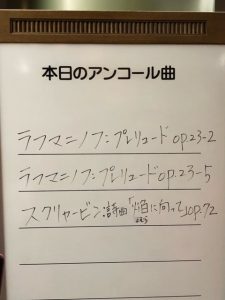 本日のアンコール曲
ラフマニノフ:プレリュード op.23-2
ラフマニノフ:プレリュード op.23-5
スクリャービン:詩曲「焔に向って」op.72